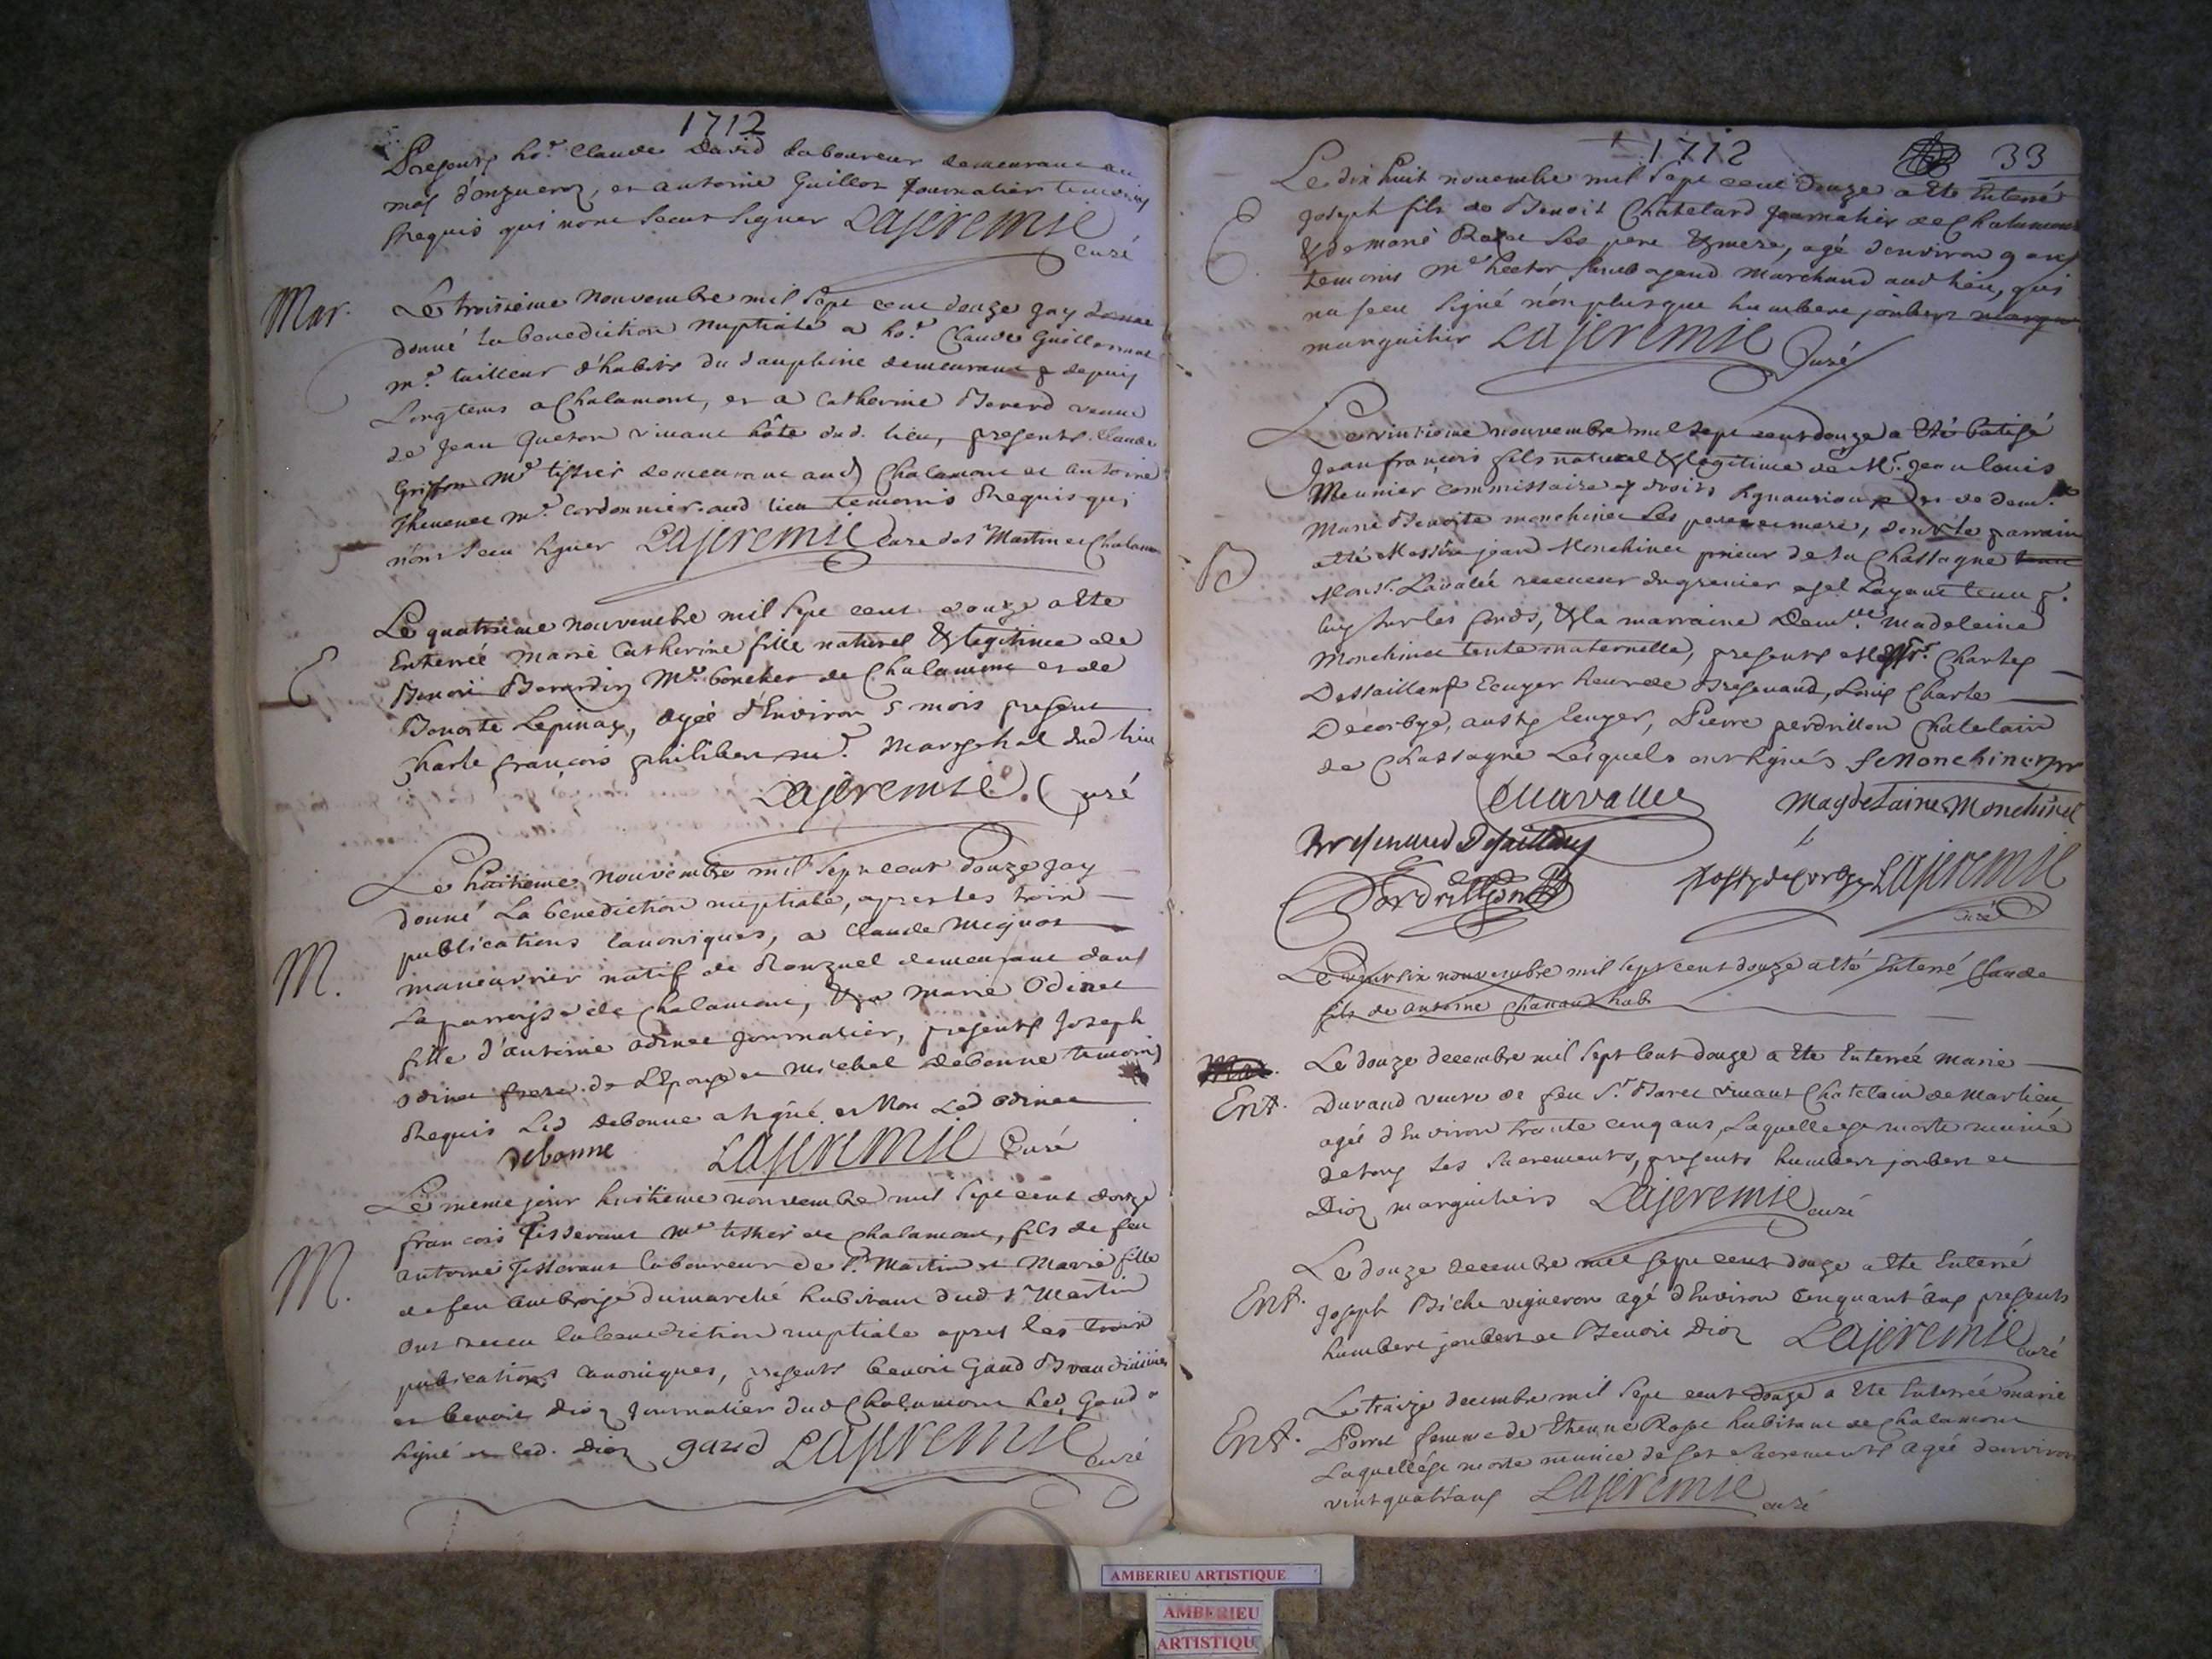 1712
Presents ho.^r Claude David laboureur demeurant au
mas d'onzueroz, et antoine Guillot Journalier temoins
Requis qui n'ont sceut signer Lajeremie
curé
Mar.
Le troisieme nouvembre mil sept cent douze jay donné
donné la benediction nuptiale a ho.^r Claude Guillermet
m.^e tailleur d'habits du dauphine demeurant depuis
Longtems a Chalamont, et a Catherine Bererd veuve
de Jean Queton vivant hôte dud. lieu, presents Claude
Griffon M^e tissier demeurant aud Chalamont et antoine
Thevenet m.^e Cordonnier aud lieu temoins Requis qui
n'ont sceu signer Lajeremie Curé de s^t Martin et Chalamon
E
Le quatrieme nouvembre mil sept cent douze a ete
Enterrée Marie Catherine fille naturel & legitime de
Benoit Berardin M.^e boucher de Chalamont et de
Benoite Lepinay, agée d'Environ 5 mois present
Charle françois philibert m.^e Mareschal dud lieu
Lajeremie. Curé
Le huitieme nouvembre mil sept cent douze jay
donné La benediction nuptiale, apres les trois
publications Canoniques, a Claude Mignot
M.
manouvrier natif de Ronzuel demeurant dans
La parroisse de Chalamont, & a Marie Odinet
fille d'antoine odinet Journalier, presents Joseph
odinet frere de L'Epouse et Michel Debonne temoins
Requis Led Debonne a signé et Non Led odinet
debonne Lajeremie Curé
Le meme jour huitieme nouvembre mil sept cent douze
francois Tisserant M^e tissier de Chalamont, fils de feu
antoine Tisserant laboureur de s^t Martin et Marie fille
M.
de feu Ambroise Dumarché habitant dud s^t Martin
ont receu la benediction nuptiale apres les trois
publications Canoniques, presents benoit Gaud
et benoit Dioz Journalier dud Chalamont Led. Gaud a
signé et led. Dioz gaud Lajeremie curé
1712
33
Le dix huit novembre mil sept cent douze a ete Enterré
E
Joseph fils de Benoit Chatelard Journalier de Chalamont
& de marie Rose ses pere & mere, agé d'environ 9 ans
temoins M^e hector gaud Marchand aud lieu, qui
na sceu signé n'on plus que humbert joubert
marguilier Lajeremie Curé
Le vintieme nouvembre mil sept cent douze a Eté batisé
Jean françois fils naturel & legitime de M.^r Jean louis
Meunier Commissaire es droits et de dem.^lle
Marie Benoite monchinet ses pere et mere, dont le parrain
B
a été Messire jean Monchinet prieur de la Chassagne
Mons.^r Lavalée receveur du grenier a sel Layant tenu p.
luy sur les fonds, & la marraine Dem.^lle madeleine
Monchinet tente maternelle, presents Mess^r. Charles
Dessaillant Ecuyer sieur de Bresenaud, Louis Charle
Decorbye, aussy Ecuyer, Pierre perdrillon Chatelain
de Chassagne Lesquels ont signés J Monchinet
Lavallée Magdelaine Monchinet
Bresenaud Desaillans
Perdrillon Lajeremie
curé
Le vint six nouvembre mil sept cent douze a été Enterré Claude
fils de antoine Chanau hab
Mar.
Ent.
Le douze decembre mil sept cent douze a Ete Enterrée Marie
Durand veuve de feu S.^r Baret vivant Chatelain de Marlieu
agée d'Environ trante cinq ans, Laquelle est morte munie
de tous Ses Sacrements, presents humbert joubert et
Dioz marguiliers Lajeremie curé
Le douze decembre mil sept cent douze a Ete Enterré
Ent.
Joseph Biche vigneron agé d'Environ Cinquant'ans presents
humbert joubert et Benoit Dioz Lajeremie curé
Le traize decembre mil sept cent douze a Ete Enterrée marie
Ent.
Perret femme de Etienne Rose habitant de Chalamont
Laquelle est morte munie de ses Sacrements agée d'environ
vint quatr'ans Lajeremie curé
AMBERIEU ARTISTIQUE
AMBERIEU
ARTISTIQU